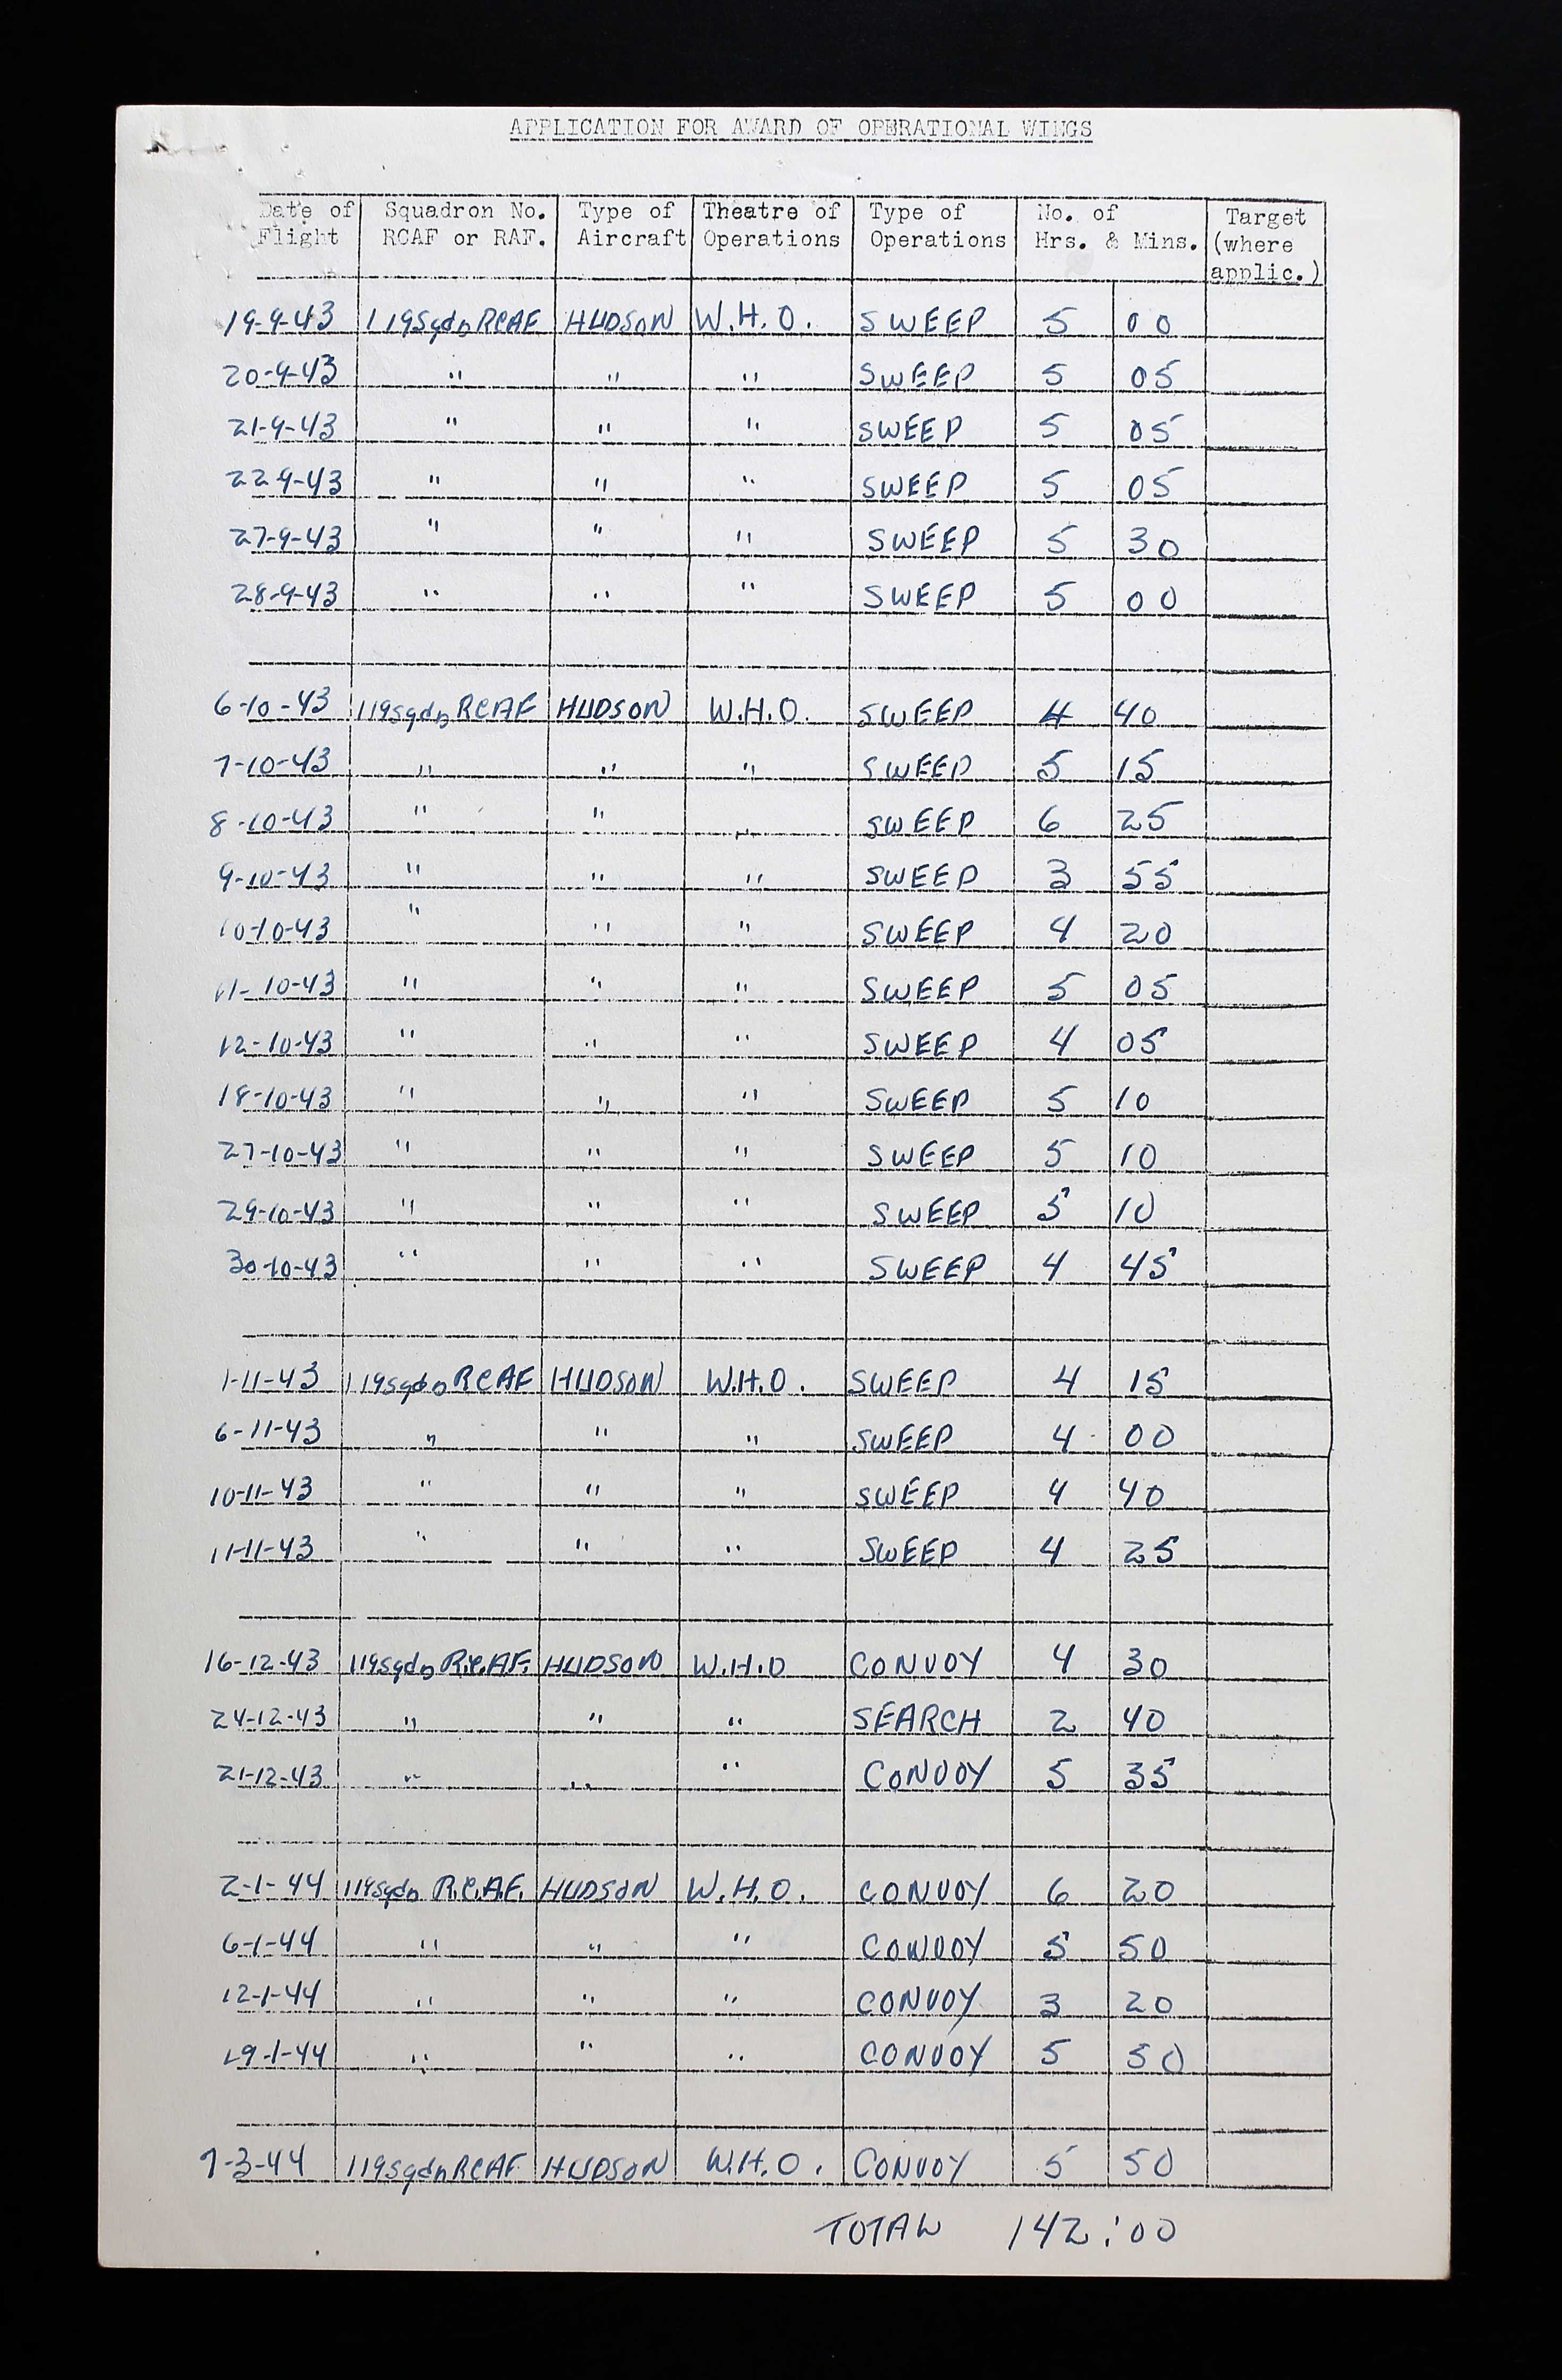 APPLICATION FOR AWARD OF OPERATIONAL WINGS
Date of Flight Squadron No. RCAF or RAF. Type of Aircraft Theatre of Operations Type of Operations No. of Hrs. & Mins. Target (where applic.)
19-9-43 119SqdnRCAF HUDSON W.H.O. SWEEP 5 00
20-9-43 " " " SWEEP 5 05
21-9-43 " " " SWEEP 5 05
22 9-43 " " " SWEEP 5 05
27-9-43 " " " SWEEP 5 30
28-9-43 " " " SWEEP 5 00
6-10-43 119Sqdn RCAF HUDSON W.H.O. SWEEP 4 40
7-10-43 " " " SWEEP 5 15
8-10-43 " " " SWEEP 6 25
9-10-43 " " " SWEEP 3 55
10-10-43 " " " SWEEP 4 20
11-10-43 " " " SWEEP 5 05
12-10-43 " " " SWEEP 4 05
18-10-43 " " " SWEEP 5 10
27-10-43 " " " SWEEP 5 10
29-10-43 " " " SWEEP 5 10
30-10-43 " " " SWEEP 4 45
1-11-43 119Sqdn RCAF HUDSON W.H.O. SWEEP 4 15
6-11-43 " " " SWEEP 4 00
10-11-43 " " " SWEEP 4 40
11-11-43 " " " SWEEP 4 25
16-12-43 119Sqdn R.C.A.F. HUDSON W.H.O CONVOY 4 30
24-12-43 " " " SEARCH 2 40
21-12-43 " " " CONVOY 5 35
2-1-44 119Sqdn R.C.A.F. HUDSON W.H.O. CONVOY 6 20
6-1-44 " " " CONVOY 5 50
12-1-44 " " " CONVOY 3 20
19-1-44 " " " CONVOY 5 50
7-3-44 119SqdnRCAF HUDSON W.H.O. CONVOY 5 50
TOTAL 142:00